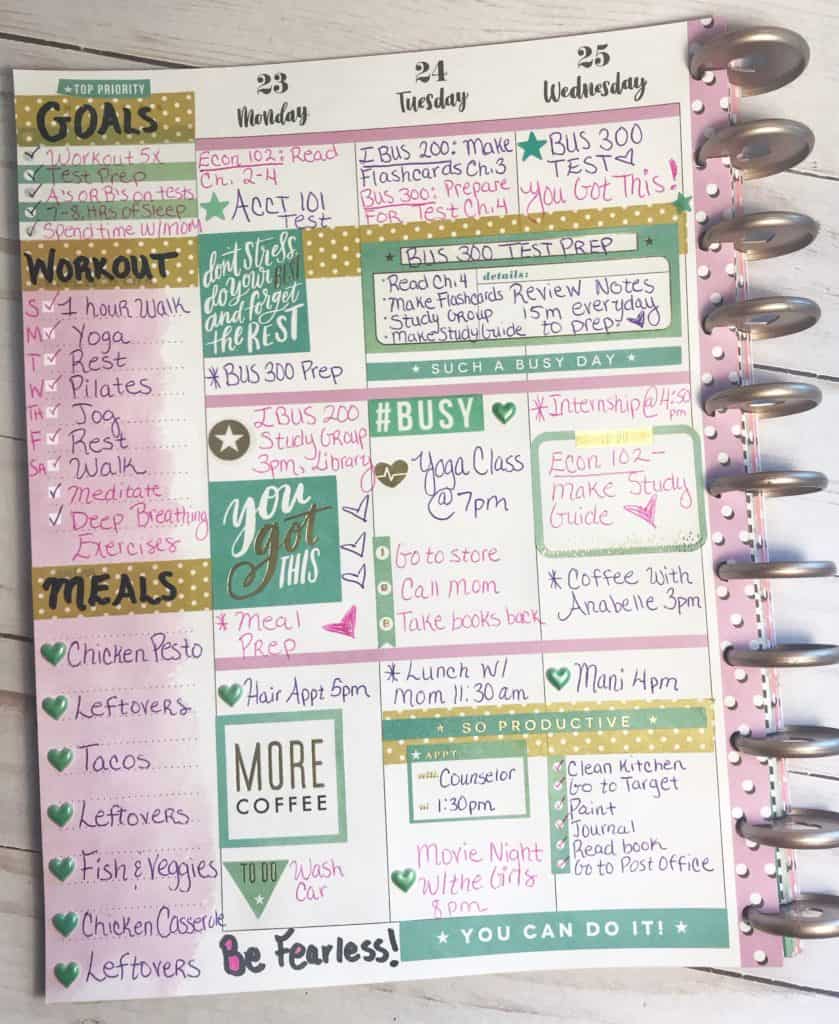 TOP PRIORITY
GOALS
Workout 5x
Test Prep
A's OR B's on tests
7-8 HRs of Sleep
Spend time w/mom
WORKOUT
S 1 hour Walk
M Yoga
T Rest
W Pilates
TH Jog
F Rest
SA Walk
Meditate
Deep Breathing
Exercises
MEALS
Chicken Pesto
Leftovers
Tacos
Leftovers
Fish & Veggies
Chicken Casserole
Leftovers
23
Monday
Econ 102: Read
Ch. 2-4
ACCT 101
Test
don't stress
do your BEST
and forget
the REST
*BUS 300 Prep
I BUS 200
Study Group
3pm, Library
you
got
THIS
* Meal
Prep
Hair Appt 5pm
MORE
COFFEE
TO DO
Wash
Car
Be Fearless!
24
Tuesday
I BUS 200: Make
Flashcards Ch.3
BUS 300: Prepare
FOR Test Ch.4
BUS 300 TEST PREP
details:
· Read Ch.4
· Make Flashcards
· Study Group
· Make Study Guide
Review Notes
15m everyday
to prep.
SUCH A BUSY DAY
#BUSY
Yoga Class
@ 7pm
Go to store
Call mom
Take books back
*Lunch W/
mom 11:30 am
SO PRODUCTIVE
APPT
with Counselor
at 1:30pm
Movie Night
W/the Girls
8pm
YOU CAN DO IT!
25
Wednesday
BUS 300
TEST
You Got This!
*Internship@4:50
pm
Econ 102-
make Study
Guide
*Coffee with
Anabelle 3pm
Mani 4pm
Clean Kitchen
Go to Target
Paint
Journal
Read book
Go to Post Office